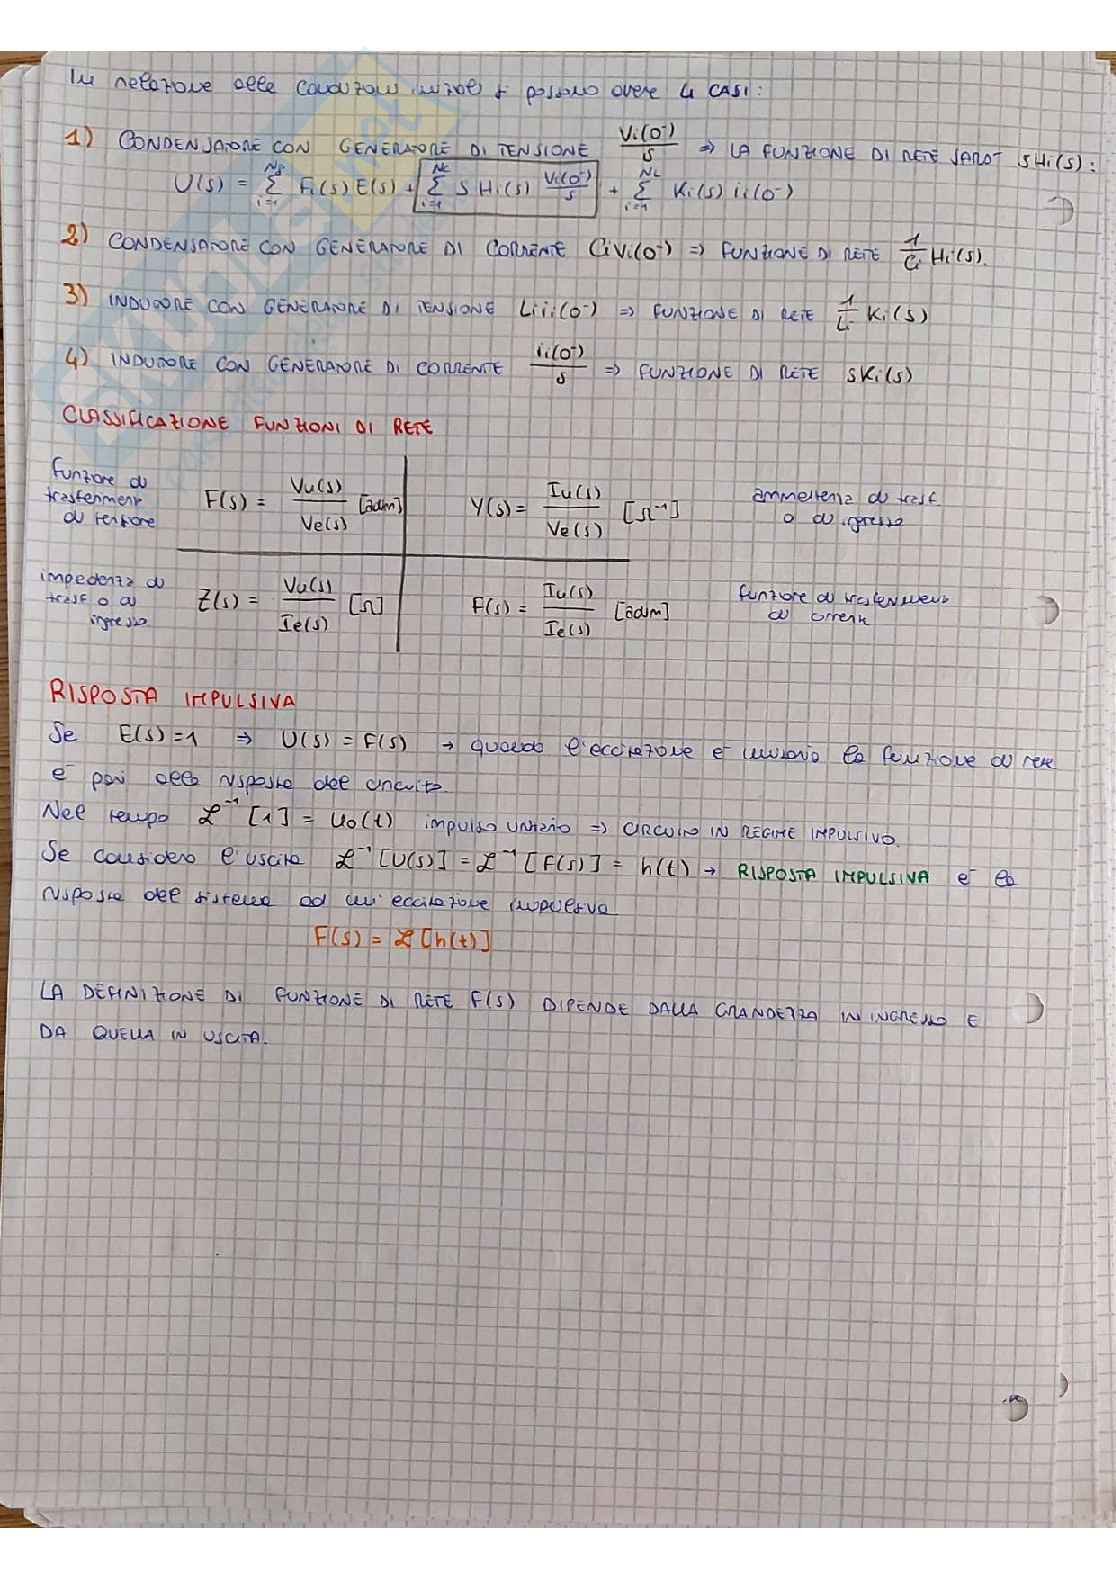 In relazione alle condizioni iniziali si possono avere 4 CASI:
1) CONDENSATORE CON GENERATORE DI TENSIONE Vi(0⁻)/s ⇒ LA FUNZIONE DI RETE SARÀ sHi(s):
U(s) = Σ_{i=1}^{Ns} Fi(s) E(s) + Σ_{i=1}^{Nc} s Hi(s) Vi(0⁻)/s + Σ_{i=1}^{NL} Ki(s) ii(0⁻)
2) CONDENSATORE CON GENERATORE DI CORRENTE CiVi(0⁻) ⇒ FUNZIONE DI RETE 1/Ci Hi(s).
3) INDUTTORE CON GENERATORE DI TENSIONE Liii(0⁻) ⇒ FUNZIONE DI RETE 1/Li Ki(s)
4) INDUTTORE CON GENERATORE DI CORRENTE ii(0⁻)/s ⇒ FUNZIONE DI RETE sKi(s)
CLASSIFICAZIONE FUNZIONI DI RETE
funzione di trasferimento di tensione F(s) = Vu(s)/Ve(s) [adim]
Y(s) = Iu(s)/Ve(s) [Ω⁻¹] ammettenza di trasf. o di ingresso
impedenza di trasf o di ingresso Z(s) = Vu(s)/Ie(s) [Ω]
F(s) = Iu(s)/Ie(s) [adim] funzione di trasferimento di corrente
RISPOSTA IMPULSIVA
Se E(s)=1 ⇒ U(s) = F(s) → quando l'eccitazione è unitaria la funzione di rete
è pari alla risposta del circuito.
Nel tempo ℒ⁻¹[1] = u₀(t) impulso unitario ⇒ CIRCUITO IN REGIME IMPULSIVO.
Se considero l'uscita ℒ⁻¹[U(s)] = ℒ⁻¹[F(s)] = h(t) → RISPOSTA IMPULSIVA è la
risposta del sistema ad un'eccitazione impulsiva
F(s) = ℒ[h(t)]
LA DEFINIZIONE DI FUNZIONE DI RETE F(s) DIPENDE DALLA GRANDEZZA IN INGRESSO E
DA QUELLA IN USCITA.